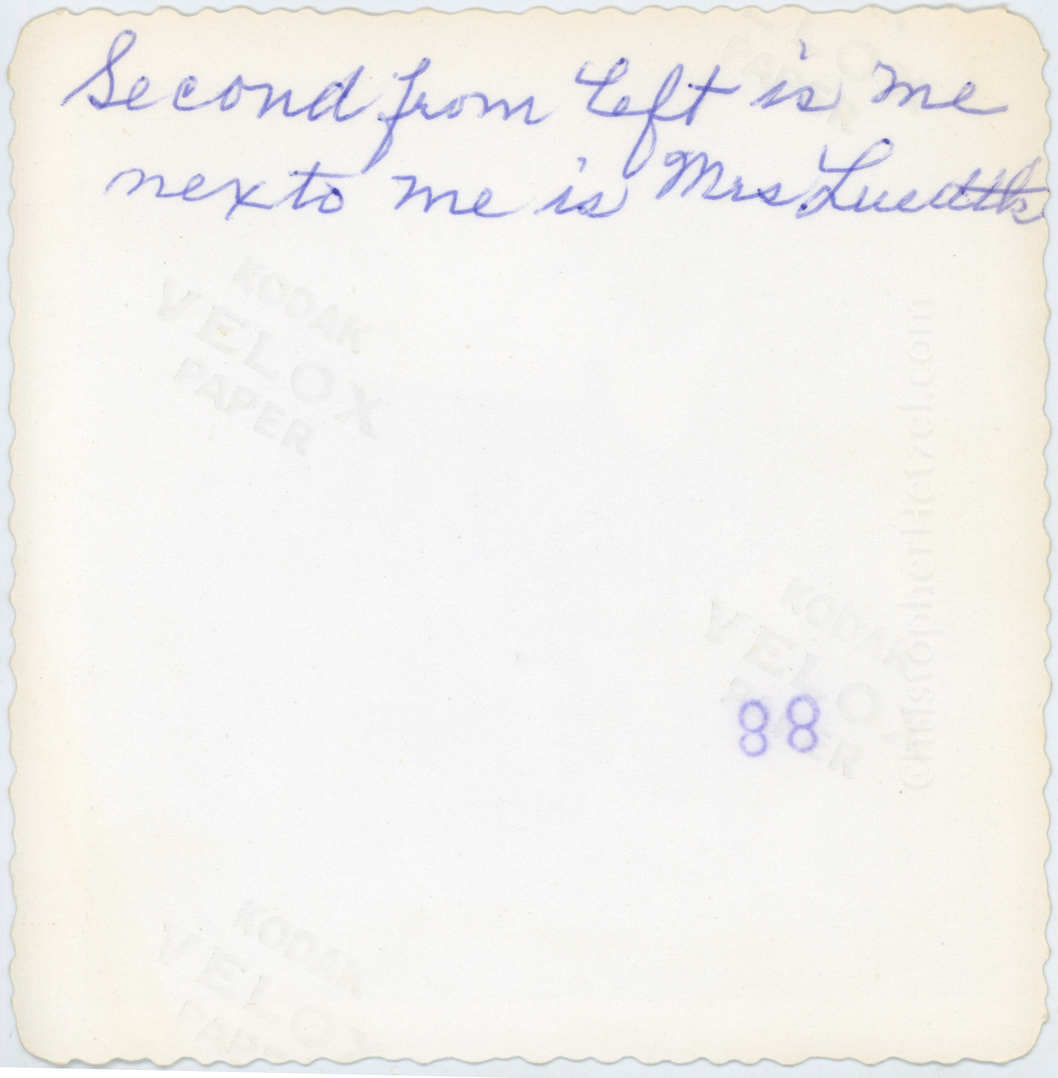 Second from Left is me
nexto me is Mrs Luedtk
KODAK
VELOX
PAPER
KODAK
VELO
PAPER
88
KODAK
VELOX
PAPE
ChristopherHetzel.com